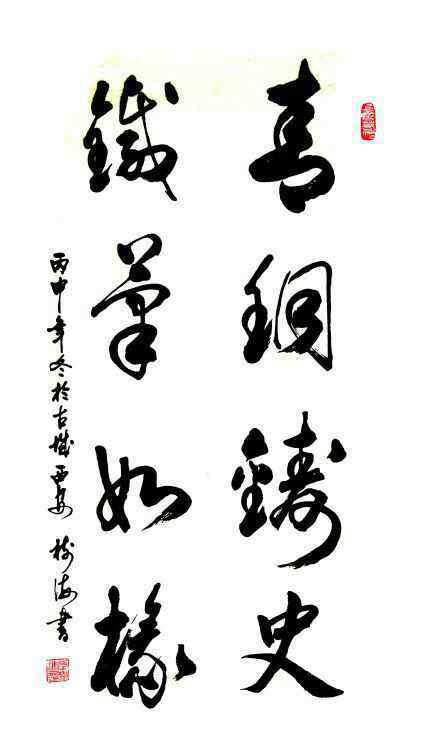 青铜铸史
铁笔如椽
丙申年冬於古城西安 树海書